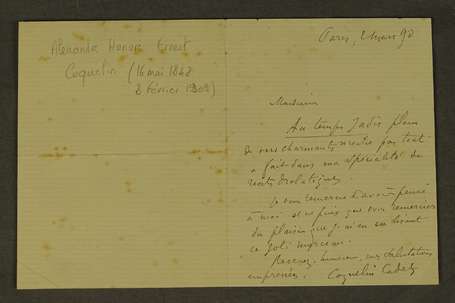 Alexandre Honoré Ernest
Coquelin (16 mai 1848
8 février 1909)
Paris, 2 mars 98
Monsieur
Au temps Jadis plein
de vers charmants n'entre pas tout
à fait dans ma spécialité de
récits drolatiques.
Je vous remercie d'avoir pensé
à moi et ne puis que vous remercier
du plaisir que j'ai eu en lisant
ce joli morceau.
Recevez, monsieur, mes salutations
empressées. Coquelin Cadet